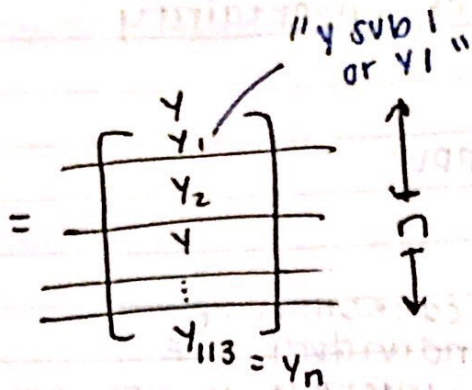 "y sub 1
or y1"
Y
Y₁
=
Y₂
n
Y
⋮
Y₁₁₃ = Yₙ